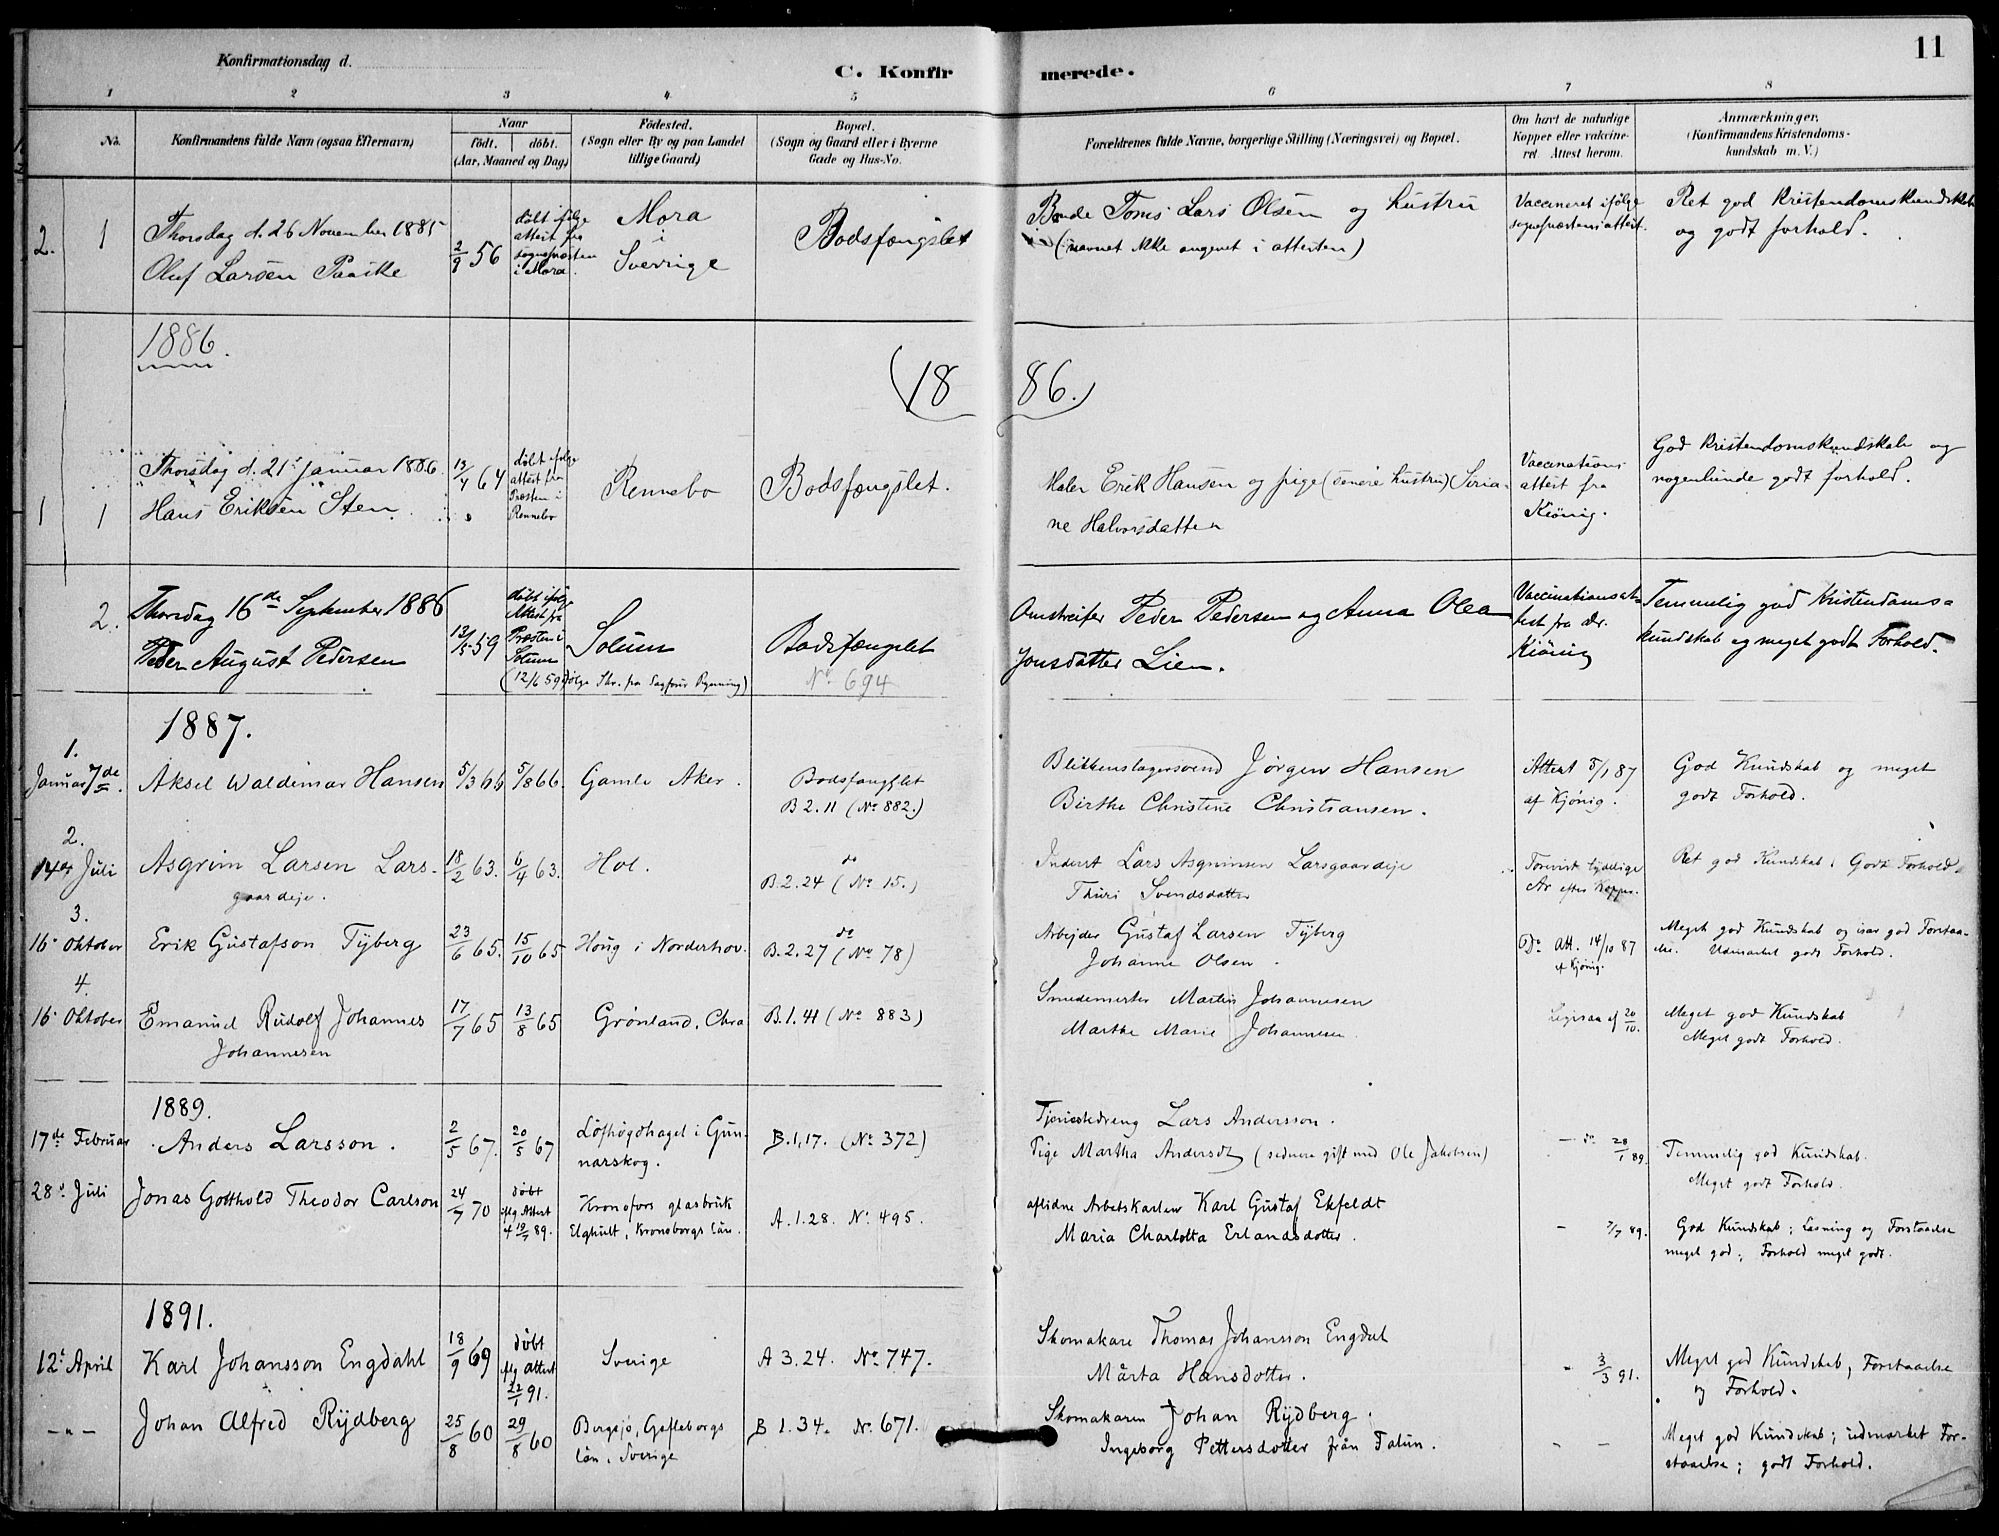 11
Konfirmationsdag d.
C. Konfirmerede.
1 2 3 4 5 6 7 8
No.
Konfirmandens fulde Navn (ogsaa Efternavn)
Naar
født. døbt.
(Aar, Maaned og Dag)
Fødested.
(Sogn eller By og paa Landet
tillige Gaard)
Bopæl.
(Sogn og Gaard eller i Byerne
Gade og Hus-No.
Forældrenes fulde Navne, borgerlige Stilling (Næringsvei) og Bopæl.
Om havt de naturlige
Kopper eller vakcine-
ret. Attest herom.
Anmærkninger.
(Konfirmandens Kristendoms-
kundskab m. V.)
2. 1
Thorsdag d. 26 November 1885
Oluf Larsen Paaske
2/9 56
døbt ifølge
attest fra
sognepræsten
i Mora.
Mora
i
Sverrige
Bodsfængslet
Bonde Toms Lars Olsen og hustru
(navnet ikke angivet i attesten)
Vaccineret ifølge
sognepræstens attest.
Ret god Kristendomskundskab
og godt forhold.
1886.
(1886.)
1 1
Thorsdag d. 21' januar 1886.
Hans Eriksen Sten
13/4 64
døbt ifølge
attest fra
Præsten i
Rennebo
Rennebo
Bodsfængslet.
Maler Erik Hansen og pige (senere hustru) Siria-
ne Halvorsdatter
Vaccinations
attest fra
Kiönig.
God kristendomskundskab og
nogenlunde godt forhold.
2.
Thorsdag 16de September 1886
Peder August Pedersen
12/5 59
døbt ifølge
Attest fra
Præsten i
Solum
(12/6 59 ifølge Skr. fra
Solum
Bodsfængslet
No. 694
Omstreifer Peder Pedersen og Anna Olea
Jonsdatter Lien.
Vaccinationsat-
test fra dr.
Kiönig
Temmelig god Kristendoms-
kundskab og meget godt Forhold.
1887.
1.
Januar 7de.
Aksel Waldemar Hansen
5/3 66
5/8 66.
Gamle Aker.
Bodsfængslet
B 2. 11 (No 882.)
Blikkenslagersvend Jørgen Hansen
Birthe Christine Christiansen.
Attest 5/1 87
af Kjönig.
God Kundskab og meget
godt Forhold.
2.
14de Juli
Asgrim Larsen Lars-
gaardeje.
18/2 63.
6/4 63.
Hol.
do
B. 2. 24 (No 15.)
Inderst Lars Asgrimsen Larsgaardeje
Thuri Svendsdatter
Forevist tydelige
Ar efter Kopper.
Ret god Kundskab; Godt Forhold.
3.
16. Oktober
Erik Gustafson Tyberg
23/6 65.
15/10 65
Houg i Norderhov.
do
B. 2. 27 (No 78)
Arbejder Gustaf Larsen Tyberg
Johanne Olsen.
Do Att. 14/10 87
af Kjönig.
Meget god Kundskab og især god Forstaa-
else. Udmærket godt Forhold.
4.
16. Oktober
Emanuel Rudolf Johannes
Johannesen
17/7 65
13/8 65
Grønland, Chra
B. 1. 41 (No 883)
Smedemester Martin Johannesen
Marthe Marie Johannesen.
Ligesaa af 20/10.
Meget god Kundskab
Meget godt Forhold.
1889.
17de Februar
Anders Larsson.
2/5 67.
20/5 67
Löfhögdhaget i Gun-
narskog.
B. 1, 17. (No 372)
Tjenestedreng Lars Andersson.
Pige Martha Andersdt (senere gift med Ole Jakobsen)
- do 28/1 89.
Temmelig god Kundskab.
Meget godt Forhold.
28. Juli
Jonas Gotthold Theodor Carlson
24/7 70
døbt
iflg Attest
af 19/7 89.
Kronofors glasbruk
Elghult, Kronobergs län.
A. 1. 28. No 495.
aflidne Arbetskarlen Karl Gustaf Ekfeldt
Maria Charlotta Erlandsdotter.
- 7/7 89.
God Kundskab; Læsning og Forstaaelse
meget god; Forhold meget godt.
1891.
12. April
Karl Johansson Engdahl
18/9 69
døbt
iflg attest
22/1 91.
Sverige
A 3. 24. No 747.
Skomakare Thomas Johansson Engdal
Märta Hansdotter.
- 3/3 91.
Meget god Kundskab, Forstaaelse
og Forhold.
- " -
Johan Alfred Rydberg
25/8 60
29/8 60
Bergsjö, Gefleborgs
län. Sverige
B 1. 34. No. 671.
Skomakaren Johan Rydberg.
Ingeborg Pettersdotter från Falun.
- -
Meget god Kundskab; udmærket For-
staaelse; godt Forhold.